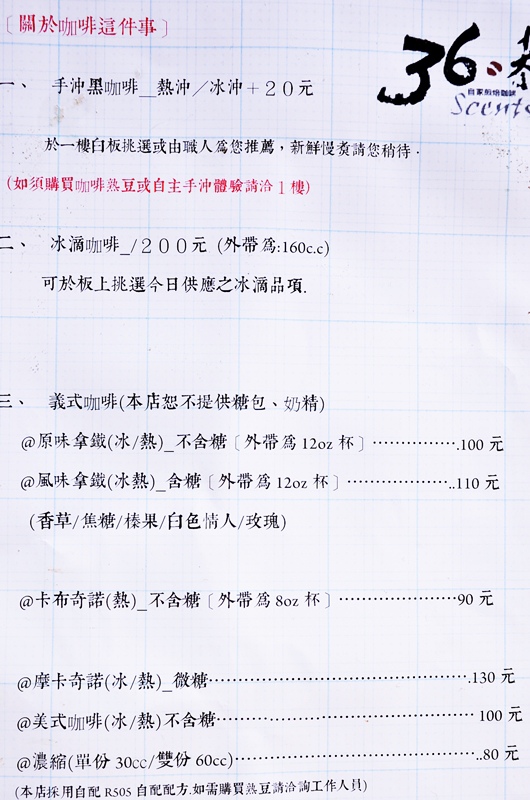 〔關於咖啡這件事〕
36
自家煎焙咖啡
Scents
一、 手沖黑咖啡＿熱沖／冰沖＋２０元
於一樓白板挑選或由職人為您推薦，新鮮慢煮請您稍待．
（如須購買咖啡熟豆或自主手沖體驗請洽１樓）
二、 冰滴咖啡_/２００元 (外帶為:160c.c)
可於板上挑選今日供應之冰滴品項.
三、 義式咖啡(本店恕不提供糖包、奶精)
@原味拿鐵(冰/熱)_不含糖〔外帶為 12oz 杯〕…………….100 元
@風味拿鐵(冰熱)_含糖〔外帶為 12oz 杯〕………………..110 元
(香草/焦糖/榛果/白色情人/玫瑰)
@卡布奇諾(熱)_不含糖〔外帶為 8oz 杯〕…………………90 元
@摩卡奇諾(冰/熱)_微糖……………………………………….130 元
@美式咖啡(冰/熱)不含糖……………………………………… 100 元
@濃縮(單份 30cc/雙份 60cc)……………………………………..80 元
(本店採用自配 R505 自配配方.如需購買熟豆請洽詢工作人員)